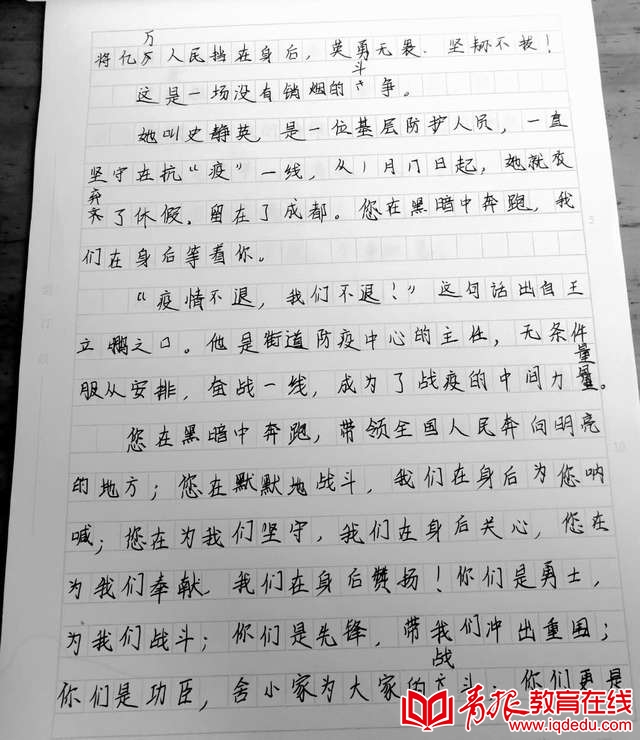 将亿万人民挡在身后，英勇无畏、坚韧不拔！
这是一场没有销烟的斗争。
她叫史静英，是一位基层防护人员，一直
坚守在抗“疫”一线，从1月17日起，她就放
弃了休假，留在了成都。您在黑暗中奔跑，我
们在身后等着你。
“疫情不退，我们不退！”这句话出自王
立鹏之口。他是街道防疫中心的主任，无条件
服从安排，奋战一线，成为了战疫的中间力量。
您在黑暗中奔跑，带领全国人民奔向明亮
的地方；您在默默地战斗，我们在身后为您呐
喊；您在为我们坚守，我们在身后关心，您在
为我们奉献，我们在身后赞扬！你们是勇士，
为我们战斗；你们是先锋，带我们冲出重围；
你们是功臣，舍小家为大家的战斗；你们更是
青报教育在线
www.iqdedu.com